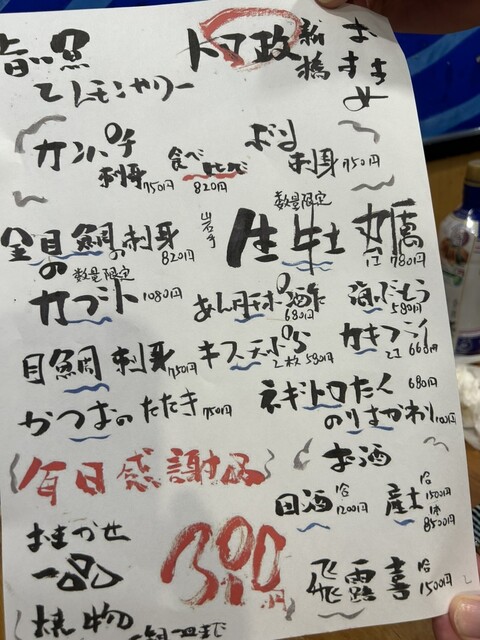 旨い魚
とレモンサワー
トマ政
新橋
おすすめ
カンパチ
刺身 750円
食べ比べ
820円
ブリ
刺身 750円
金目鯛の刺身 820円
岩手
数量限定
生牡蠣
1コ 780円
数量限定
のカブト 1080円
あん肝ポン酢
680円
海ぶどう
580円
目鯛刺身 750円
キス天ぷら
2枚 580円
カキフライ
2コ 660円
かつおのたたき 750円
ネギトロたく 680円
のりまかわり
毎日感謝品
お酒
日酒 1合
1200円
産土 1合
1500円
1本
8500円
おまかせ
一品
390円
飛露喜 1合
1500円
焼物